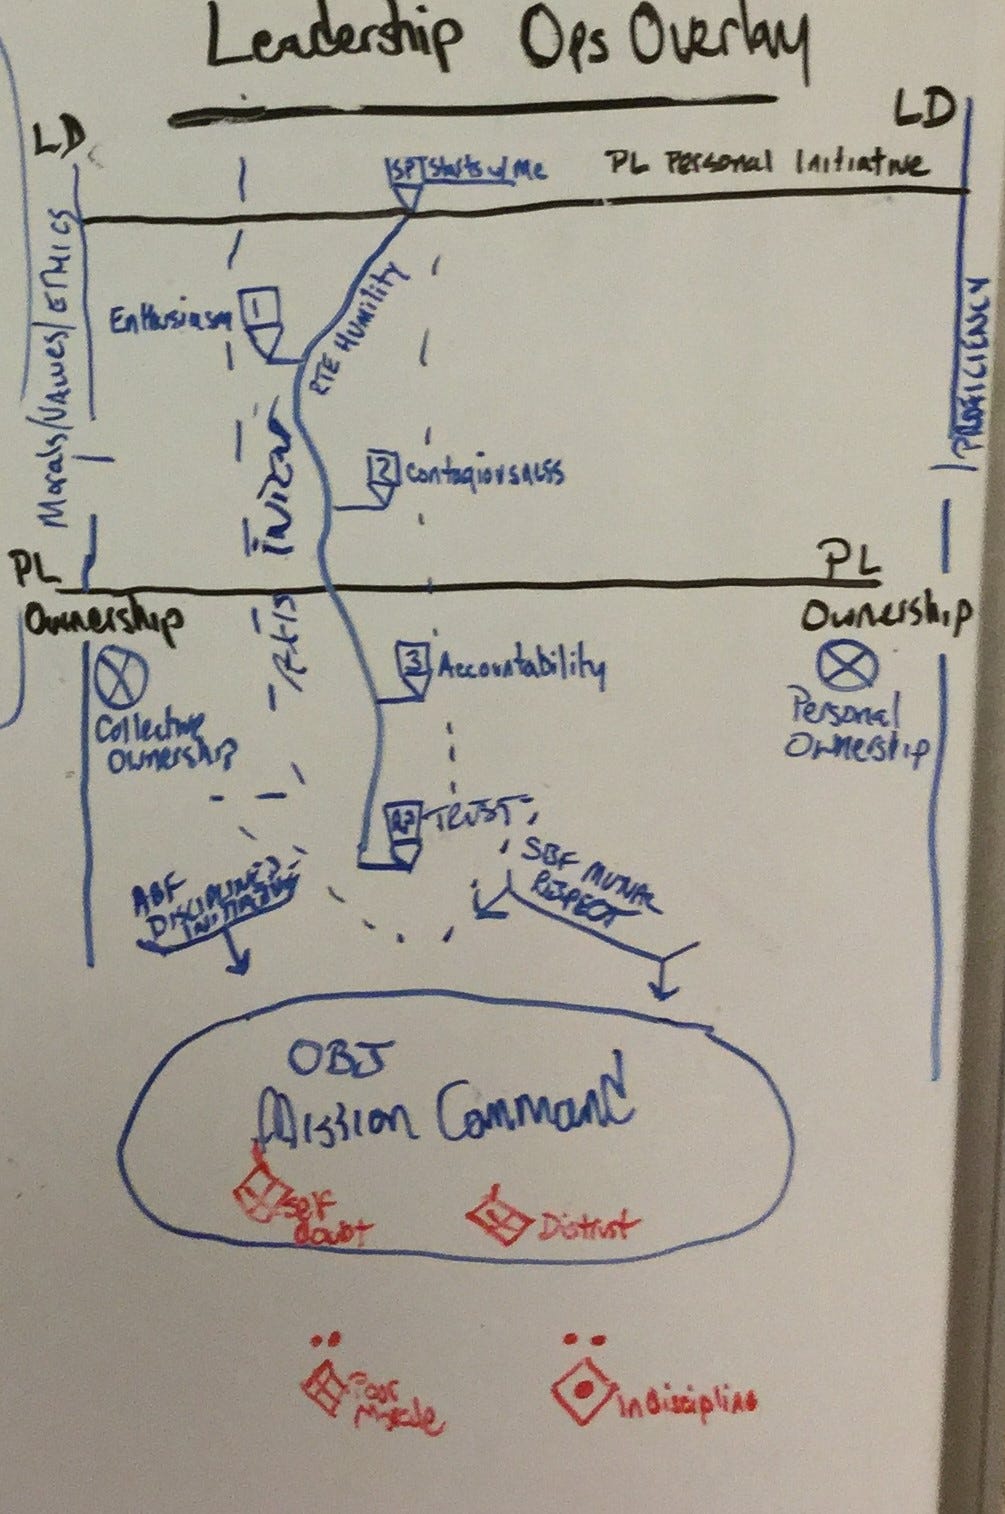 Leadership Ops Overlay
LD
LD
SP
Starts w/ Me
PL Personal Initiative
Morals/Values/ETHICS
PROFICIENCY
Enthusiasm
1
RTE HUMILITY
2
Contagiousness
PL
PL
Ownership
Ownership
Axis
3
Accountability
Collective
Ownership
Personal
Ownership
RP
TRUST
ABF
DISCIPLINED
INITIATIVE
SBF MUTUAL
RESPECT
OBJ
Mission Command
Self
doubt
Distrust
Poor
Morale
Indiscipline